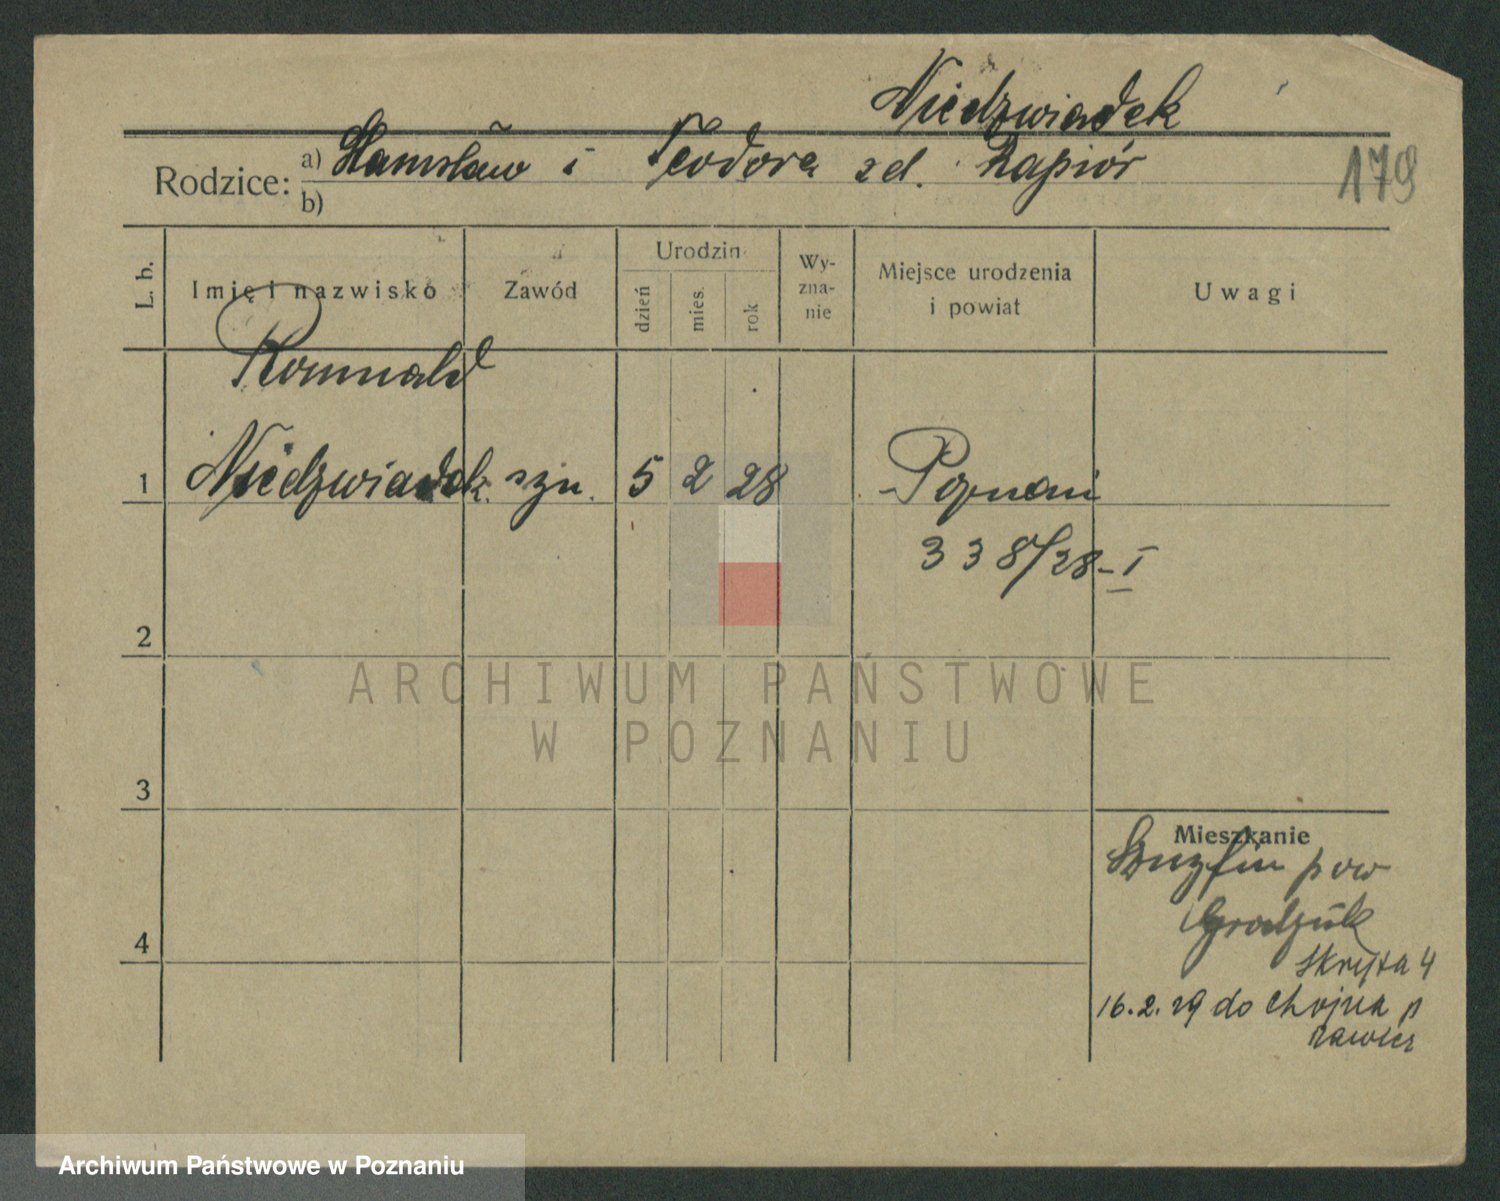 Niedzwiadek
Rodzice: a) Stanisław i Teodora zd. Rapiór
b)
179
L. b.
Imię i nazwisko
Zawód
Urodzin
dzień
mies.
rok
Wy-
zna-
nie
Miejsce urodzenia
i powiat
Uwagi
Romuald
1 Niedzwiadek syn. 5 2 28 Poznań
338/28-I
2
ARCHIWUM PAŃSTWOWE
W POZNANIU
3
Mieszkanie
pow
4
Skryta 4
16.2.29 do Chojna p
Archiwum Państwowe w Poznaniu